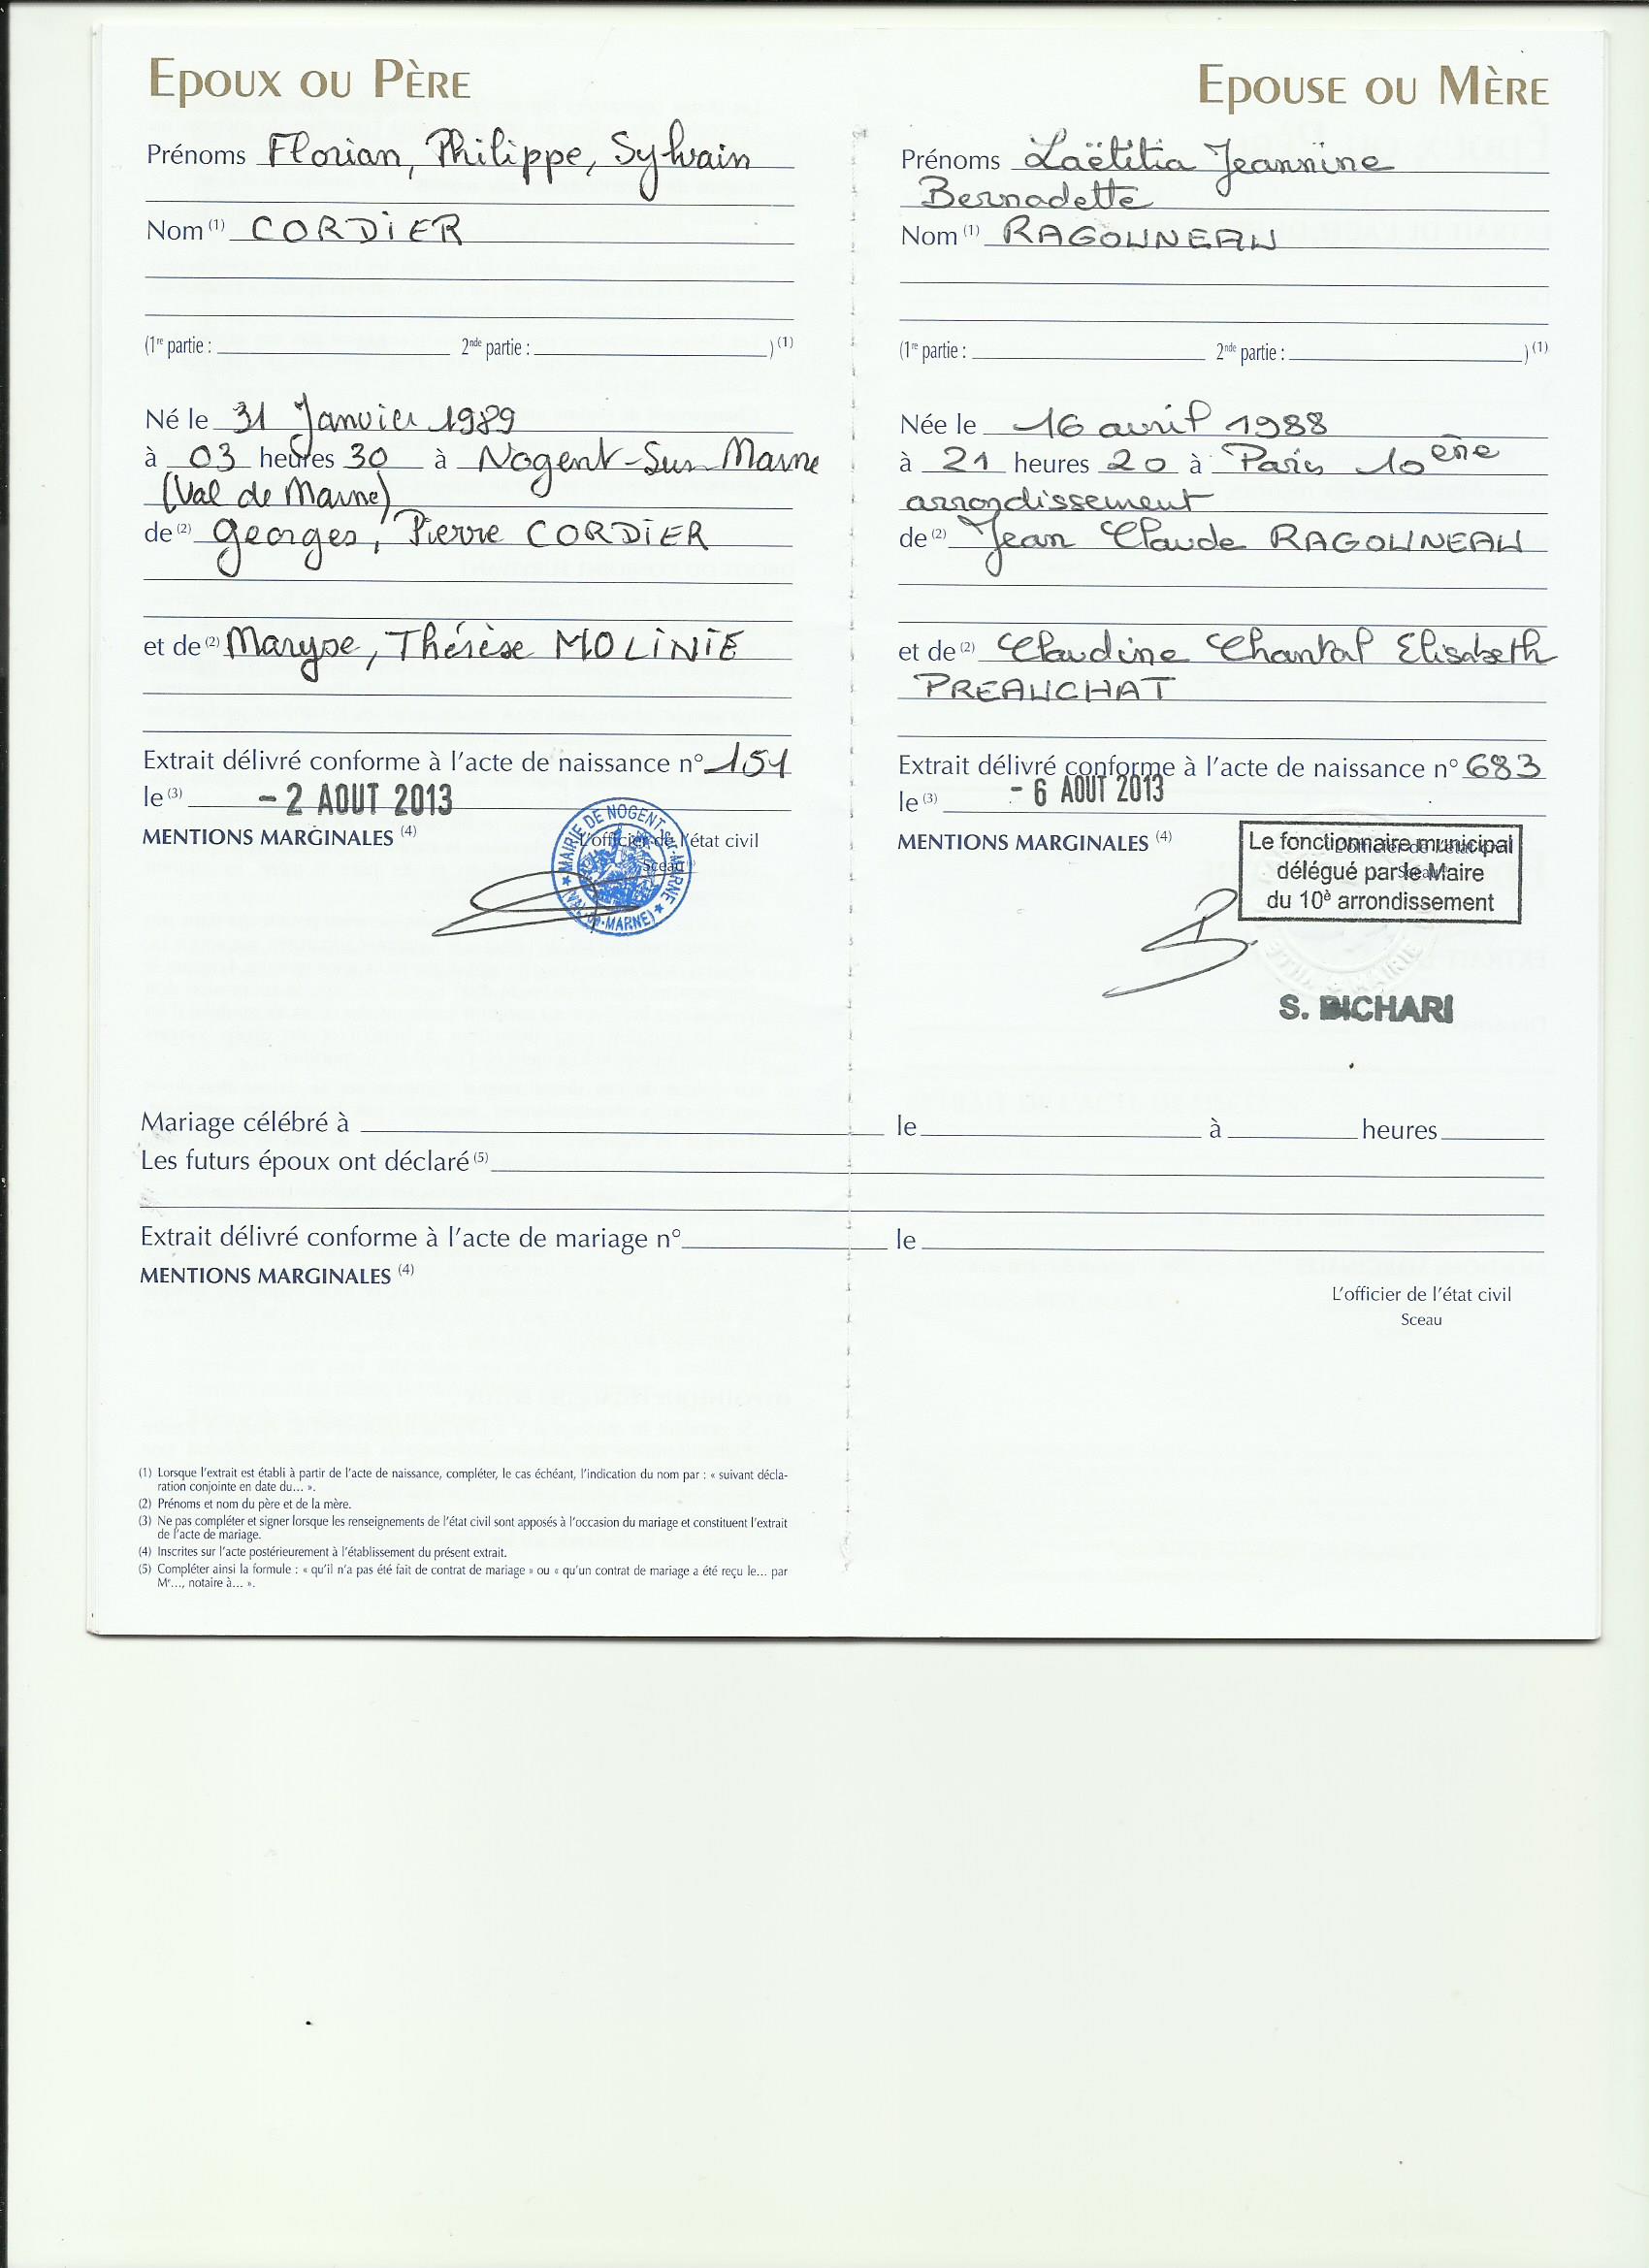 EPOUX OU PÈRE
Prénoms Florian, Philippe, Sylvain
Nom (1) CORDIER
(1re partie : 2nde partie : ) (1)
Né le 31 Janvier 1989
à 03 heures 30 à Nogent-Sur-Marne
(Val de Marne)
de (2) Georges, Pierre CORDIER
et de (2) Maryse, Thérèse MOLINIE
Extrait délivré conforme à l'acte de naissance n° 151
le (3) - 2 AOUT 2013
MENTIONS MARGINALES (4)
L'officier de l'état civil
Sceau
MAIRIE DE NOGENT-SUR-MARNE
(VAL-DE-MARNE)
EPOUSE OU MÈRE
Prénoms Laëtitia Jeannine
Bernadette
Nom (1) RAGOUNEAU
(1re partie : 2nde partie : ) (1)
Née le 16 avril 1988
à 21 heures 20 à Paris 10ème
arrondissement
de (2) Jean Claude RAGOUNEAU
et de (2) Claudine Chantal Elisabeth
PREAUCHAT
Extrait délivré conforme à l'acte de naissance n° 683
le (3) - 6 AOUT 2013
MENTIONS MARGINALES (4)
L'officier de l'état civil
Sceau
Le fonctionnaire municipal
délégué par le Maire
du 10è arrondissement
S. BICHARI
Mariage célébré à le à heures
Les futurs époux ont déclaré (5)
Extrait délivré conforme à l'acte de mariage n° le
MENTIONS MARGINALES (4)
L'officier de l'état civil
Sceau
(1) Lorsque l'extrait est établi à partir de l'acte de naissance, compléter, le cas échéant, l'indication du nom par : « suivant décla-
ration conjointe en date du... ».
(2) Prénoms et nom du père et de la mère.
(3) Ne pas compléter et signer lorsque les renseignements de l'état civil sont apposés à l'occasion du mariage et constituent l'extrait
de l'acte de mariage.
(4) Inscrites sur l'acte postérieurement à l'établissement du présent extrait.
(5) Compléter ainsi la formule : « qu'il n'a pas été fait de contrat de mariage » ou « qu'un contrat de mariage a été reçu le... par
Me..., notaire à... ».